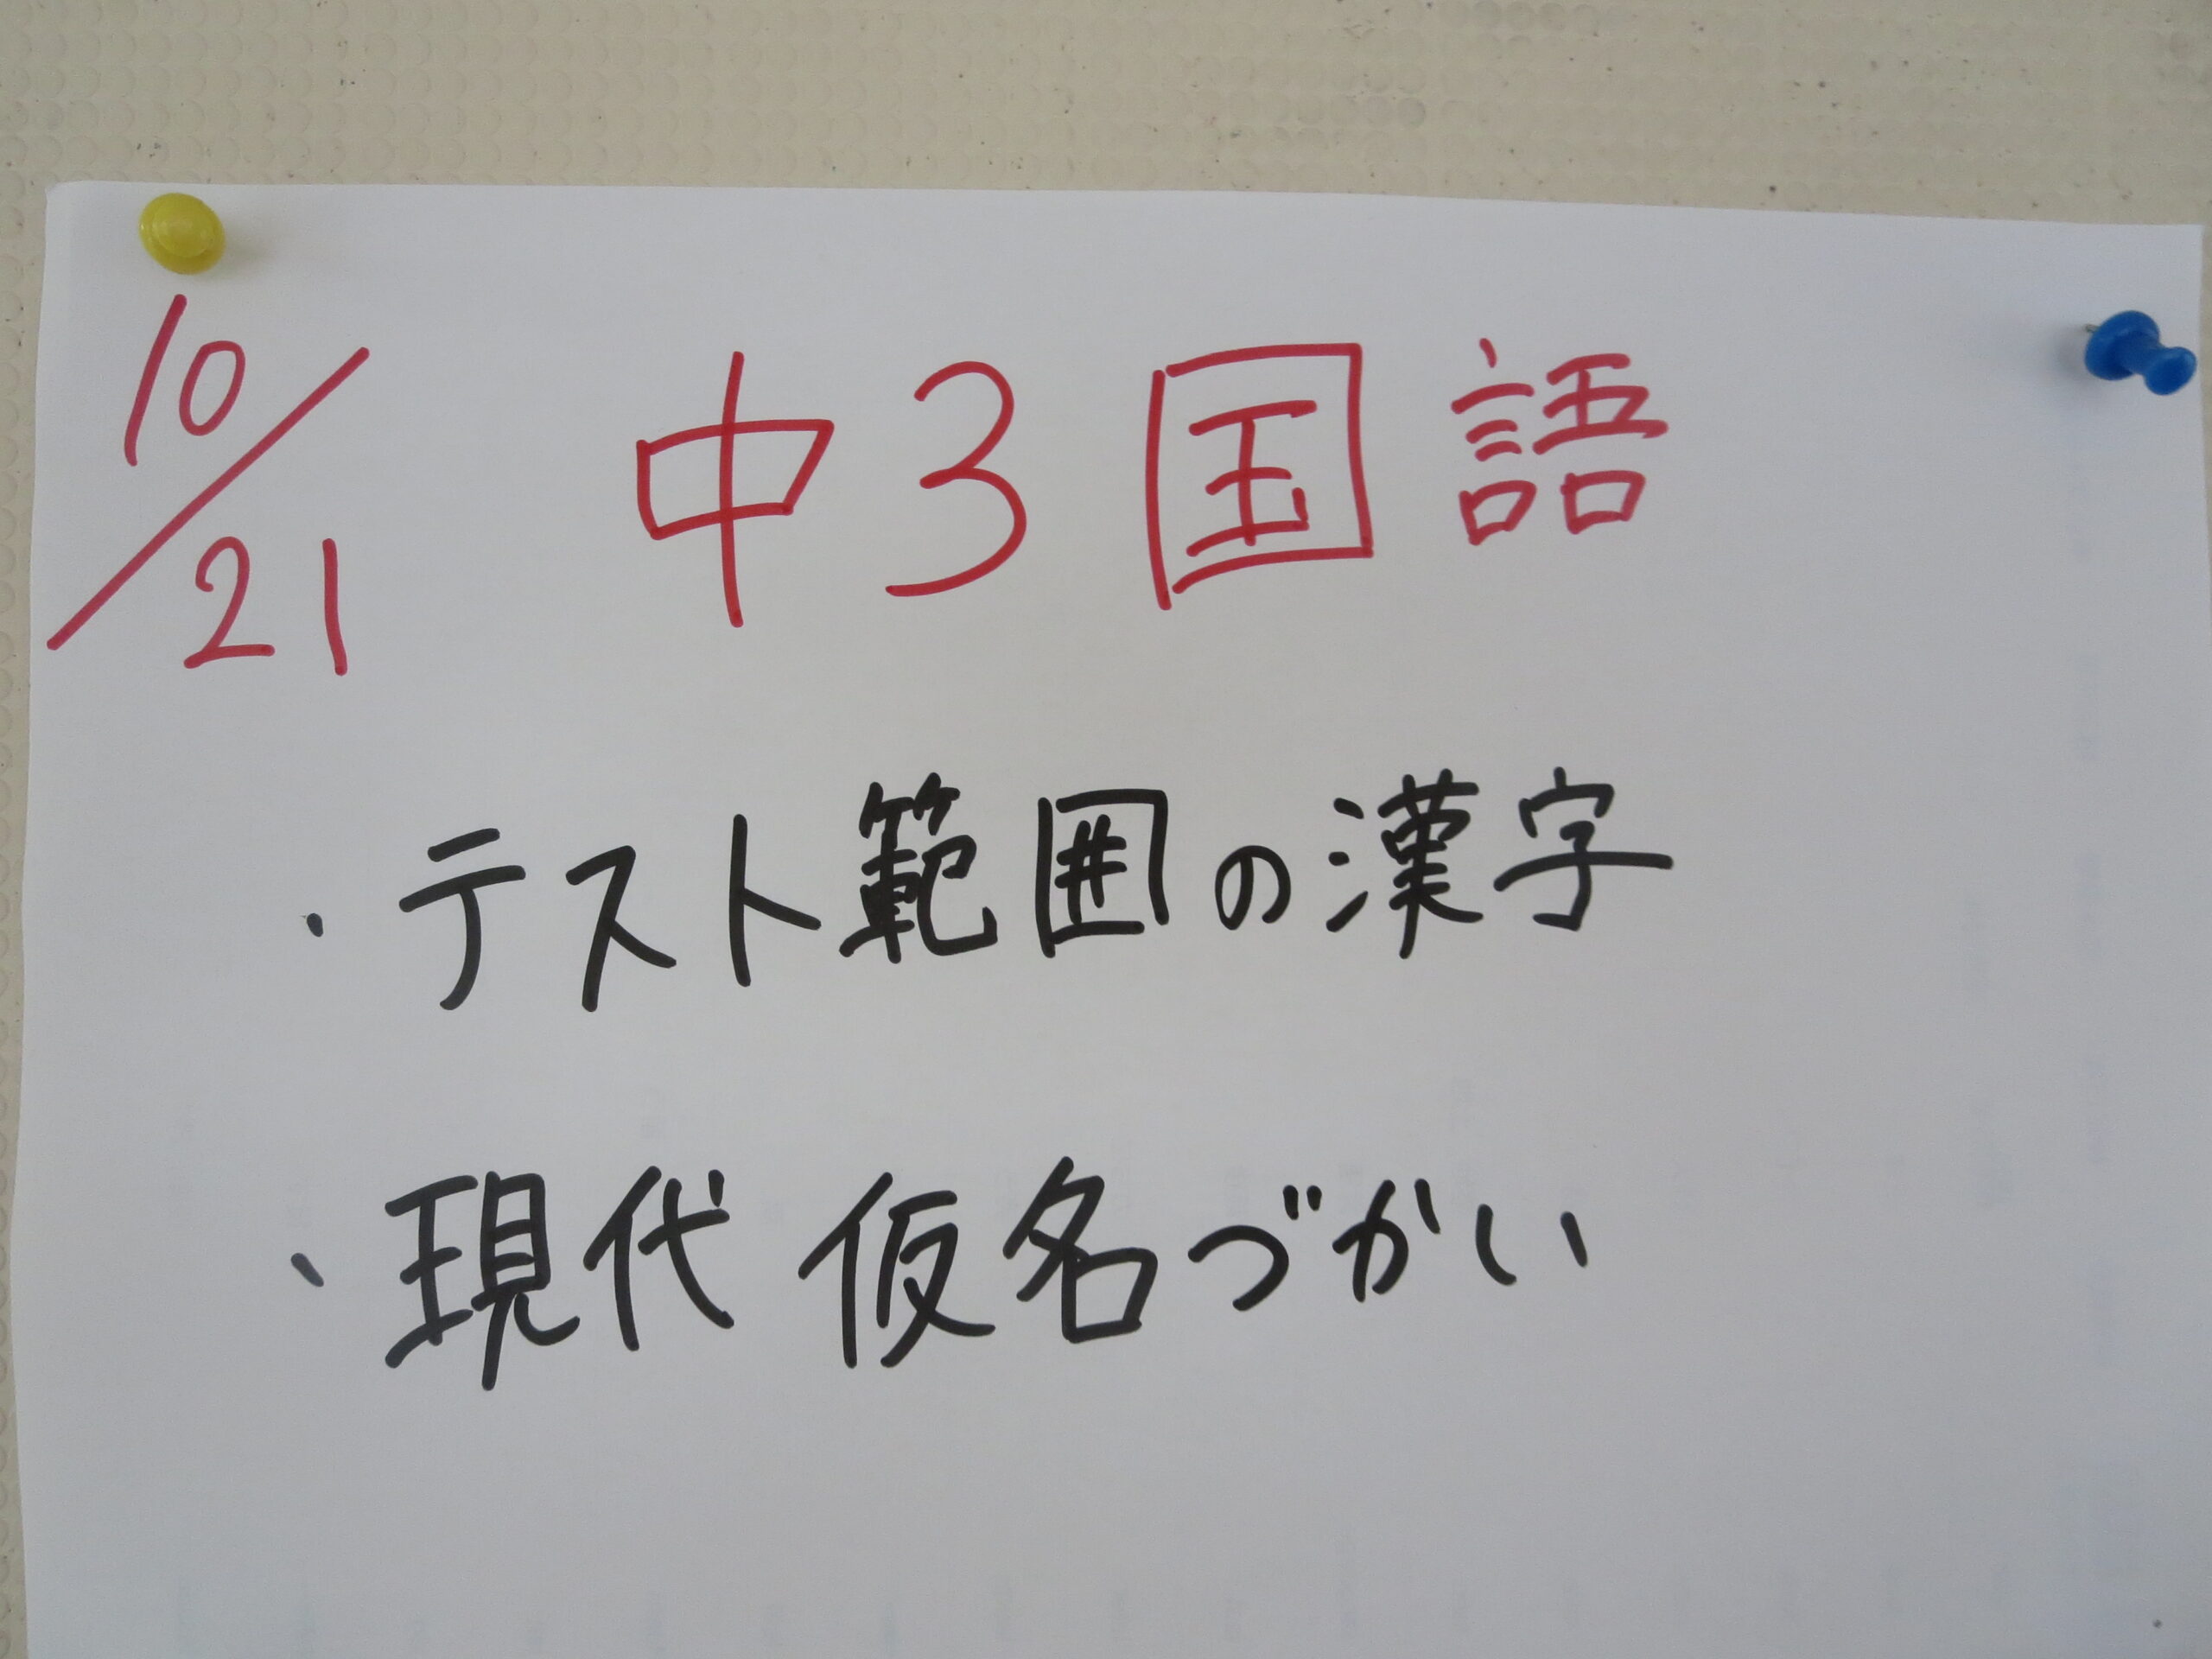 10/21 中3国語
・テスト範囲の漢字
・現代仮名づかい